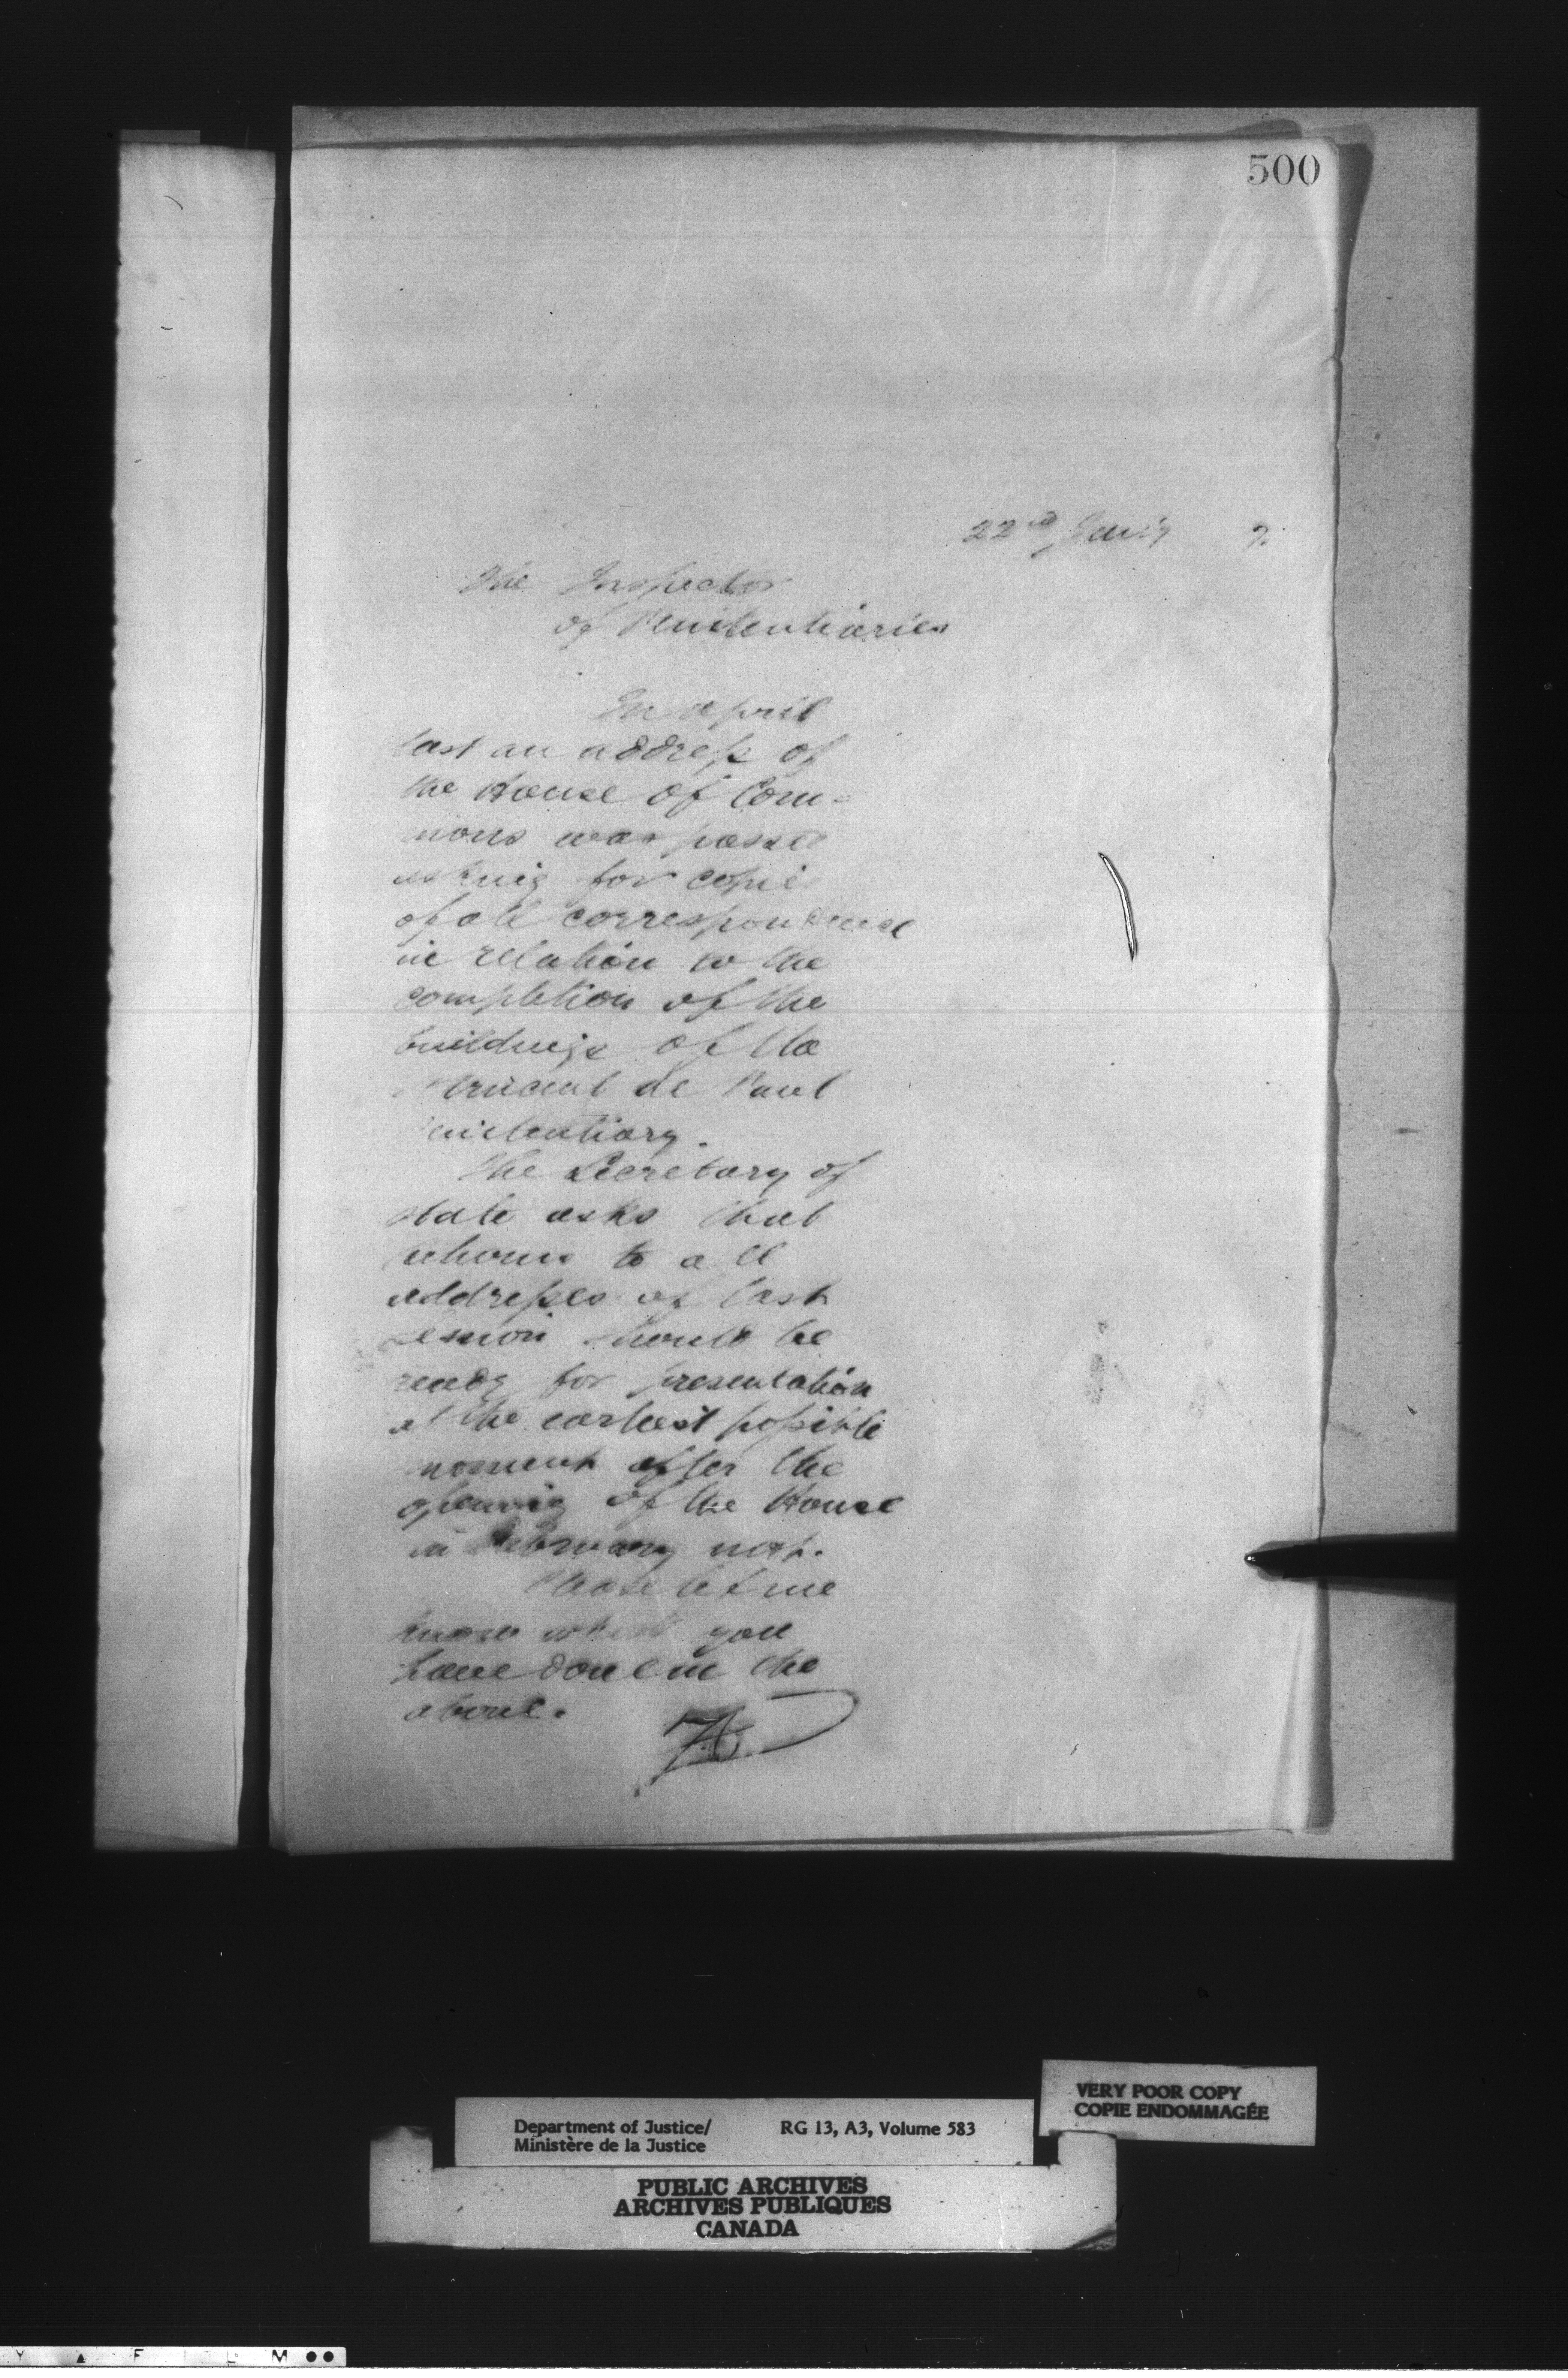 500
22nd Jan'y 7.
The Inspector
of Penitentiaries
In April
last an address of
the House of Com-
mons was passed
asking for copies
of all correspondence
in relation to the
completion of the
buildings of the
Vincent de Paul
Penitentiary.
The Secretary of
State asks that
returns to all
addresses of last
session should be
ready for presentation
at the earliest possible
moment after the
opening of the House
in February next.
Please let me
know what you
have done in the
above.
VERY POOR COPY
COPIE ENDOMMAGÉE
Department of Justice/ RG 13, A3, Volume 583
Ministère de la Justice
PUBLIC ARCHIVES
ARCHIVES PUBLIQUES
CANADA